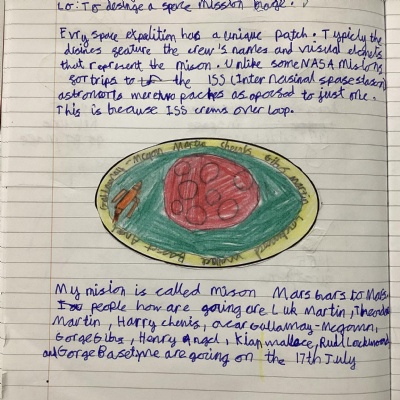 Lo: To desinge a space mission badge.
Evry space expalition has a unique patch. Typicly the
desines geature the crew's names and visual elemets
that represent the mison. Unlike some NASA mistons
gor trips to the ISS (Inter nasinal spase stason)
astronorts mere two paches as oposed to just one.
This is because ISS crews over lap.
Gallaway-Mcgown Martin Chenis Gibs Martin
Lockwood Wallace Baset Angel
My mision is called mison Mars Gars to Mars
people how are going are Luk Martin, Theodor
Martin, Harry chenis, oscar Gullamay-Mcgown,
Gorge Gibs, Henry Angel, Kian wallace, Ruben Lockwood
and Gorge Basetyne are going on the 17th July